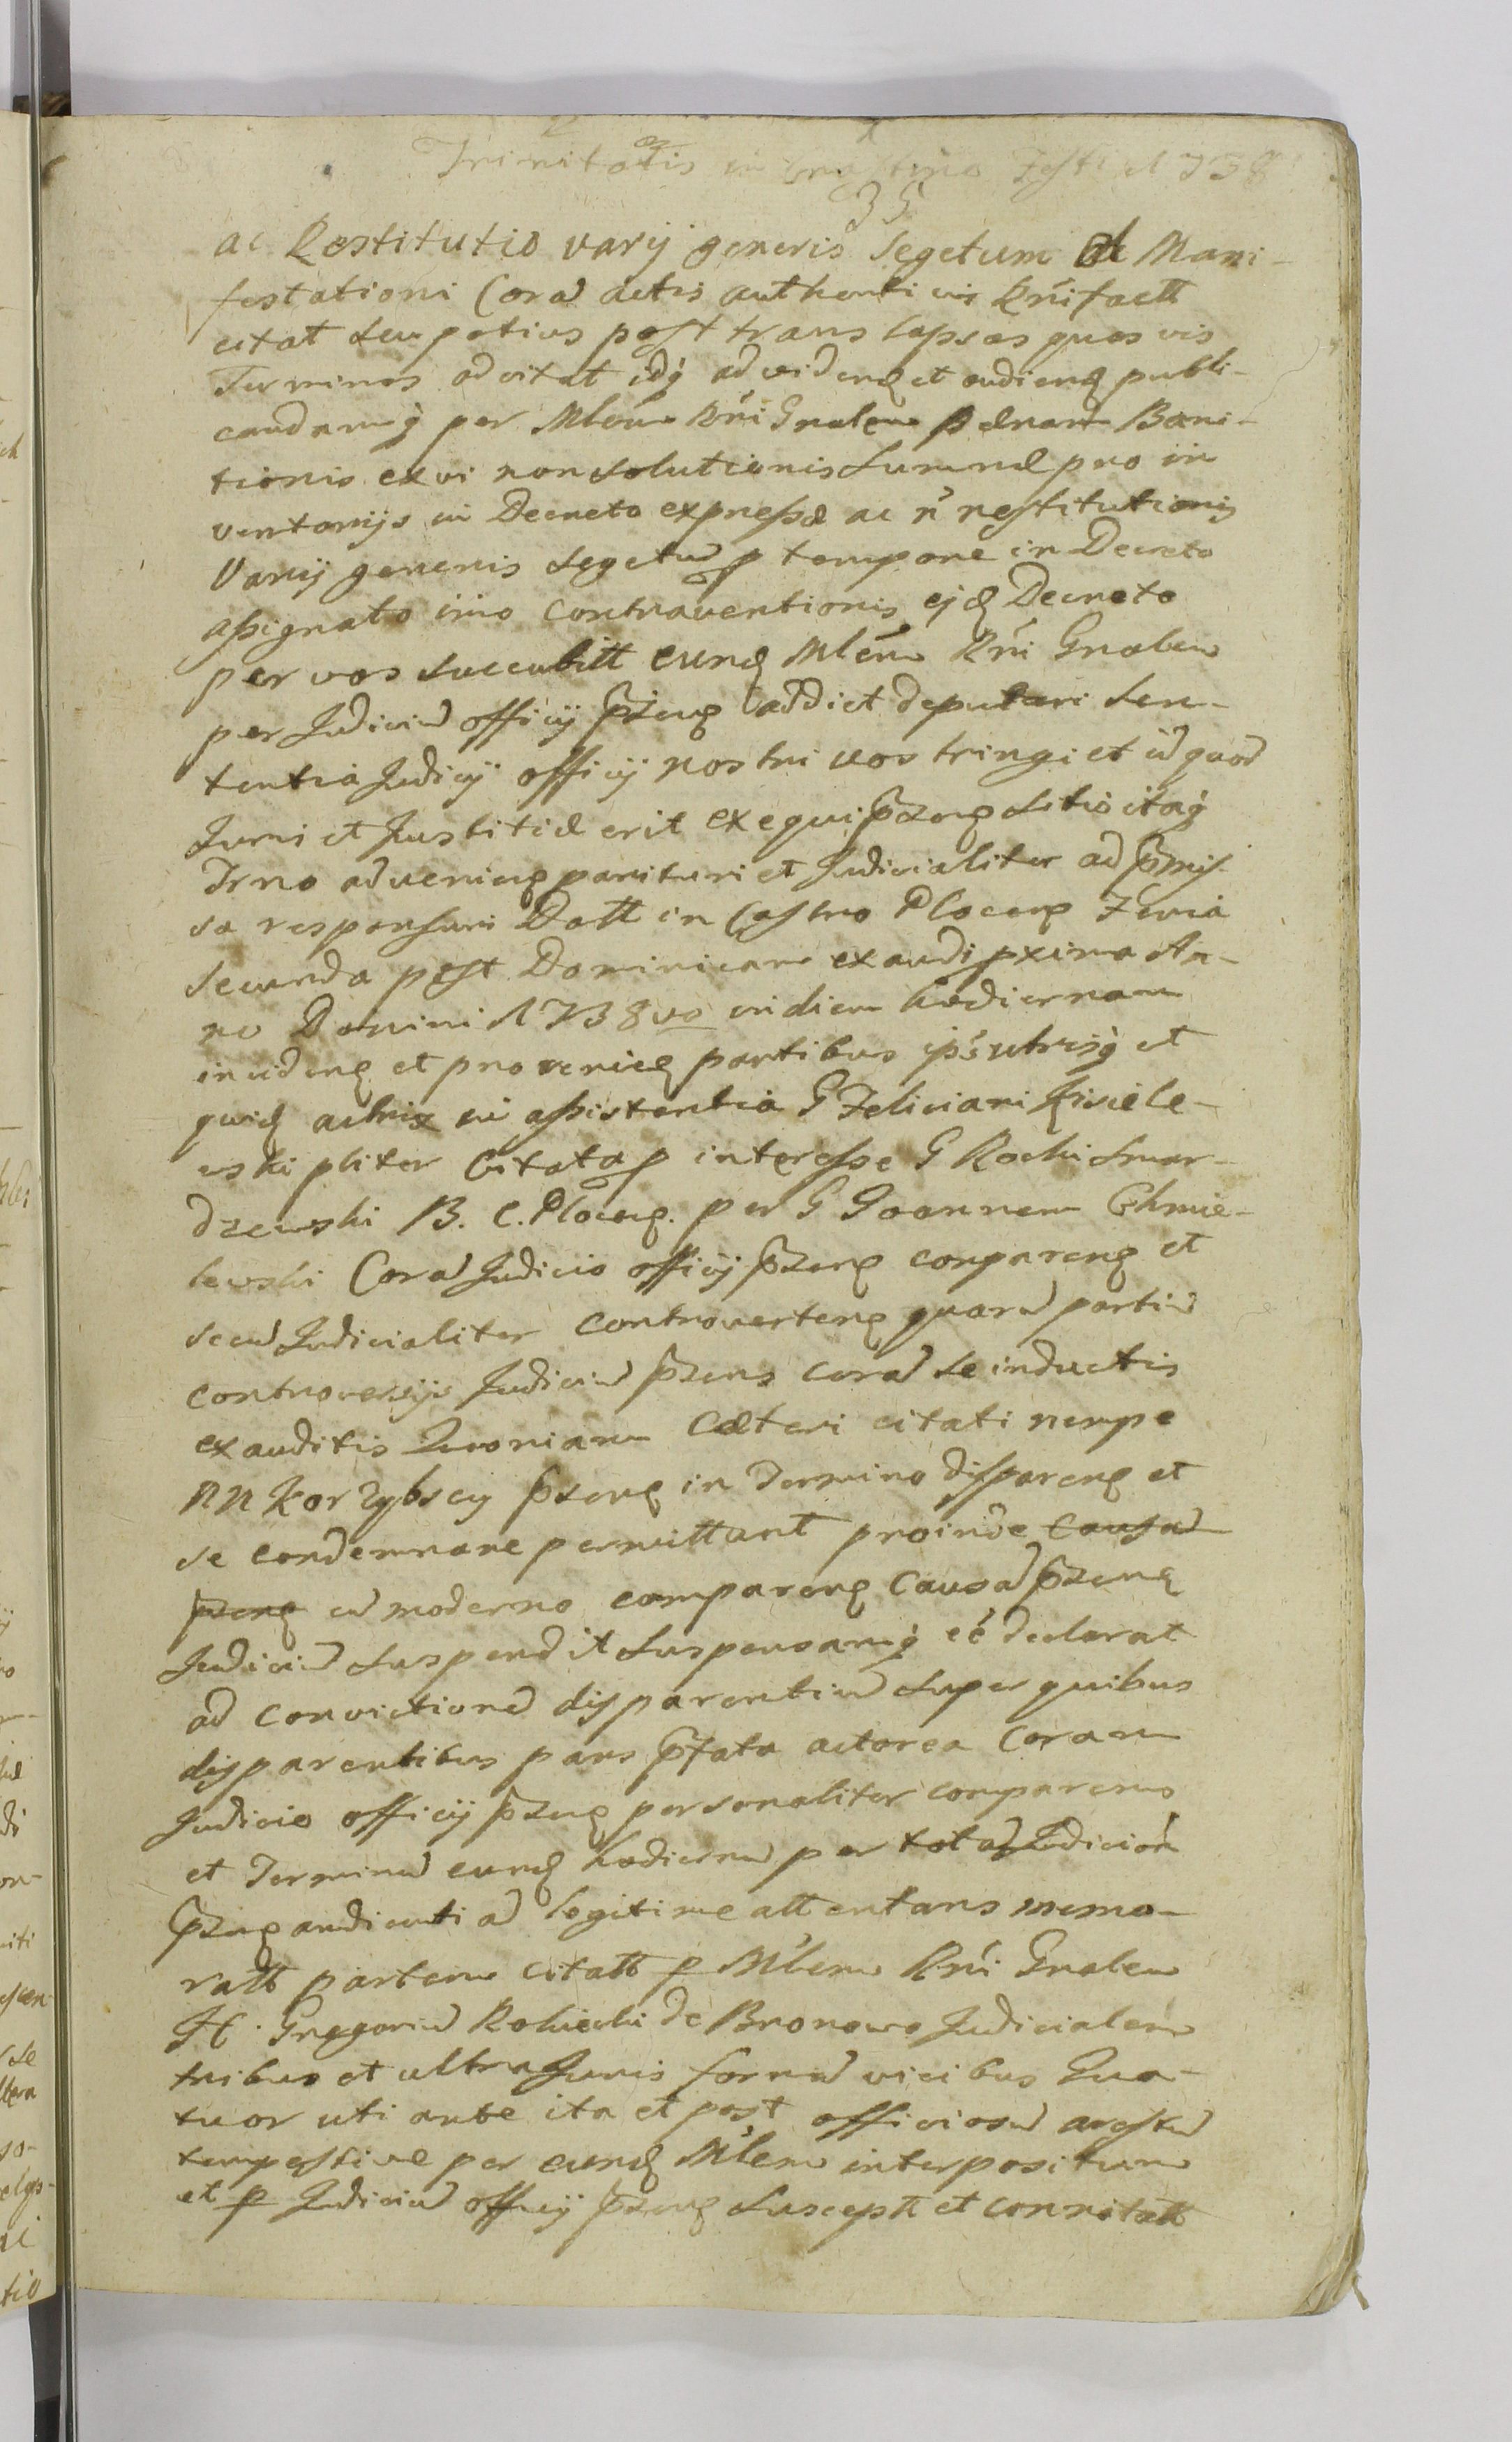 Trinitatis in Crastino Festi 1738
35
ac Restitutio varij generis Segetum et Mani-
festationi Corã actis authenticis Rñi factt
citat seu potius post trans lapsas quos vis
Terminos advitat idq́ ad vidend et audiend publi-
candamq́ per Mlem Rñi Gnalem pænam Bani-
tionis ex vi non solutionis Summæ pro in
ventarijs in Decreto expressæ ac ñ restitutionis
Varij generis segetũ p tempore in Decreto
assignato imo contraventionis ejd Decreto
per vos succubitt eund Mlem Rñi Gnalem
per Judiciũ officij pzeng addict deputari Sen-
tentia Judicij officij nostri vos stringi et id quod
Juri et Justitiæ erit exequi pzeng Setis itaq́
Trno adveniens parituri et Judicialiter ad pmis-
sa responsuri Datt in Castro Plocens Feria
Secunda post Dominicam exaudi pxima An-
no Domini 1738vo in diem hodiernam
incidens et proveniens partibus ips utrisq́ et
quid actrix in assistentia G Feliciani Kisiele-
wski pliter Citata p interesse G Rochi Smar-
dzewski B. C. Plocens. per G Joannem Chmie-
lewski Corã Judicio officij pzeng comparens et
secũ Judicialiter controvertens quarũ partiũ
controversijs Judiciũ pzens corã se inductis
exauditis Quoniam Cæteri citati nempe
NN Korzybscy pzeng in Termino dispareng et
se condemnare permittant proinde Causam
pzeng cũ moderno comparens Causã pzeng
Judiciũ Suspendit Suspensamq́ eé declarat
ad convictionẽ disparentiũ Super quibus
disparentibus pars pfata actorea Coram
Judicio officij pzeng personaliter comparens
et Terminũ eund hodiernũ per totã Judicioř
pzeng audientiã legitime attentans memo-
ratt partem citatt p Mlem Rñi Gnalem
H. Gregoriũ Rokicki de Bronowo Judicialem
tribus et ultra Juris formã vicibus Qua-
tuor uti ante ita et post officiosũ arestũ
tempestive per eund Mlem interpositum
et p Judiciũ officij pzeng Suscept et connotatt